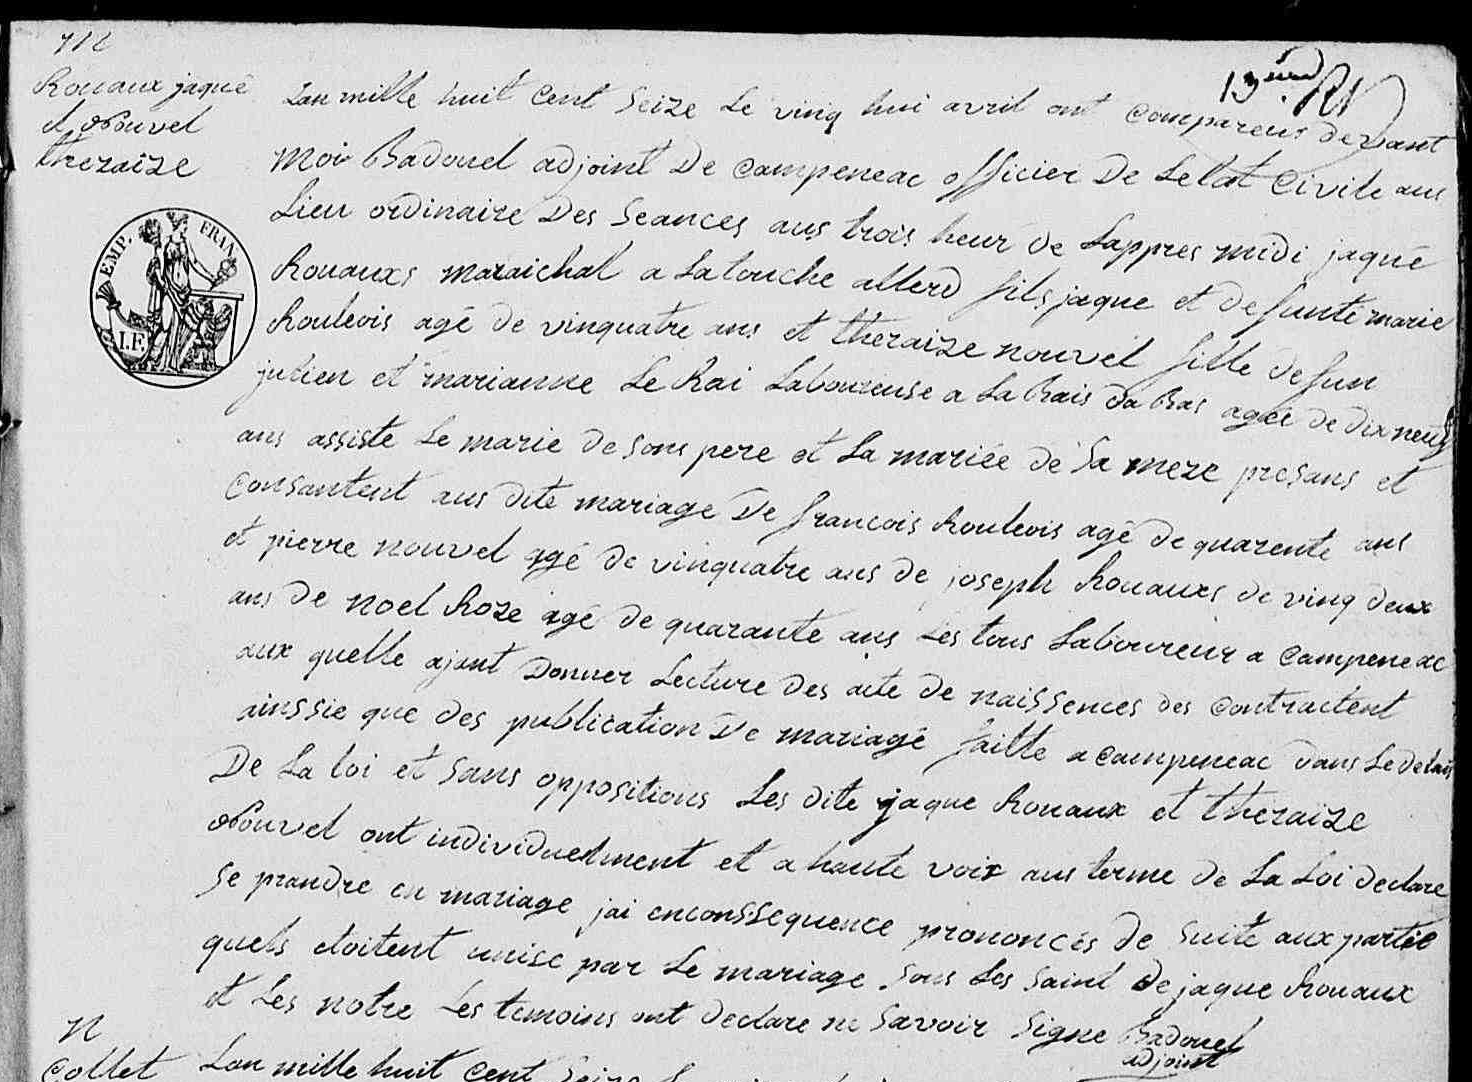 712
13
Rouaux jaque
et Nouvel
theraize
Lan mille huit Cent Seize Le vinq hui avril ont Compareus devant
Moi Badouel adjoint De Campeneac officier De Letat Civile aus
Lieu ordinaire Des Seances aus trois heur de Lappres midi jaque
Rouauxs maraichal a Latouche allerd fils jaque et defunte marie
Rouleois agé de vinquatre ans et theraize nouvel fille defun
julien et marianne Le Rai Laboureuse a La Rais da Bas ageé de dix neuf
ans assiste Le marie de Sons pere et La mariée de Sa meze presans et
Consantent aus dite mariage De francois Rouleois agé de quarente ans
et pierre nouvel agé de vinquatre ans de joseph Rouauxs de vinq deux
ans De noel Roze agé de quarante ans Les tous Laboureur a Campeneac
aux quelle ajant Donner Lecture Des acte de naissences des Contractent
ainssie que des publication De mariage faitte a Campeneac dans Le delais
De La loi et Sans oppositions Les dite jaque Rouaux et theraize
Nouvel ont individuelment et a haute voix aus terme de La Loi declare
Se prandre en mariage jai enconssequence prononcés de Suite aux partie
quels etoitent unise par Le mariage Sous Les Saint de jaque Rouaux
et Les notre Les temoins ont declare ne Savoir Signe Badouel
adjoint
EMP. FRAN
I.F.
N
Collet
Lan mille huit Cent Seize